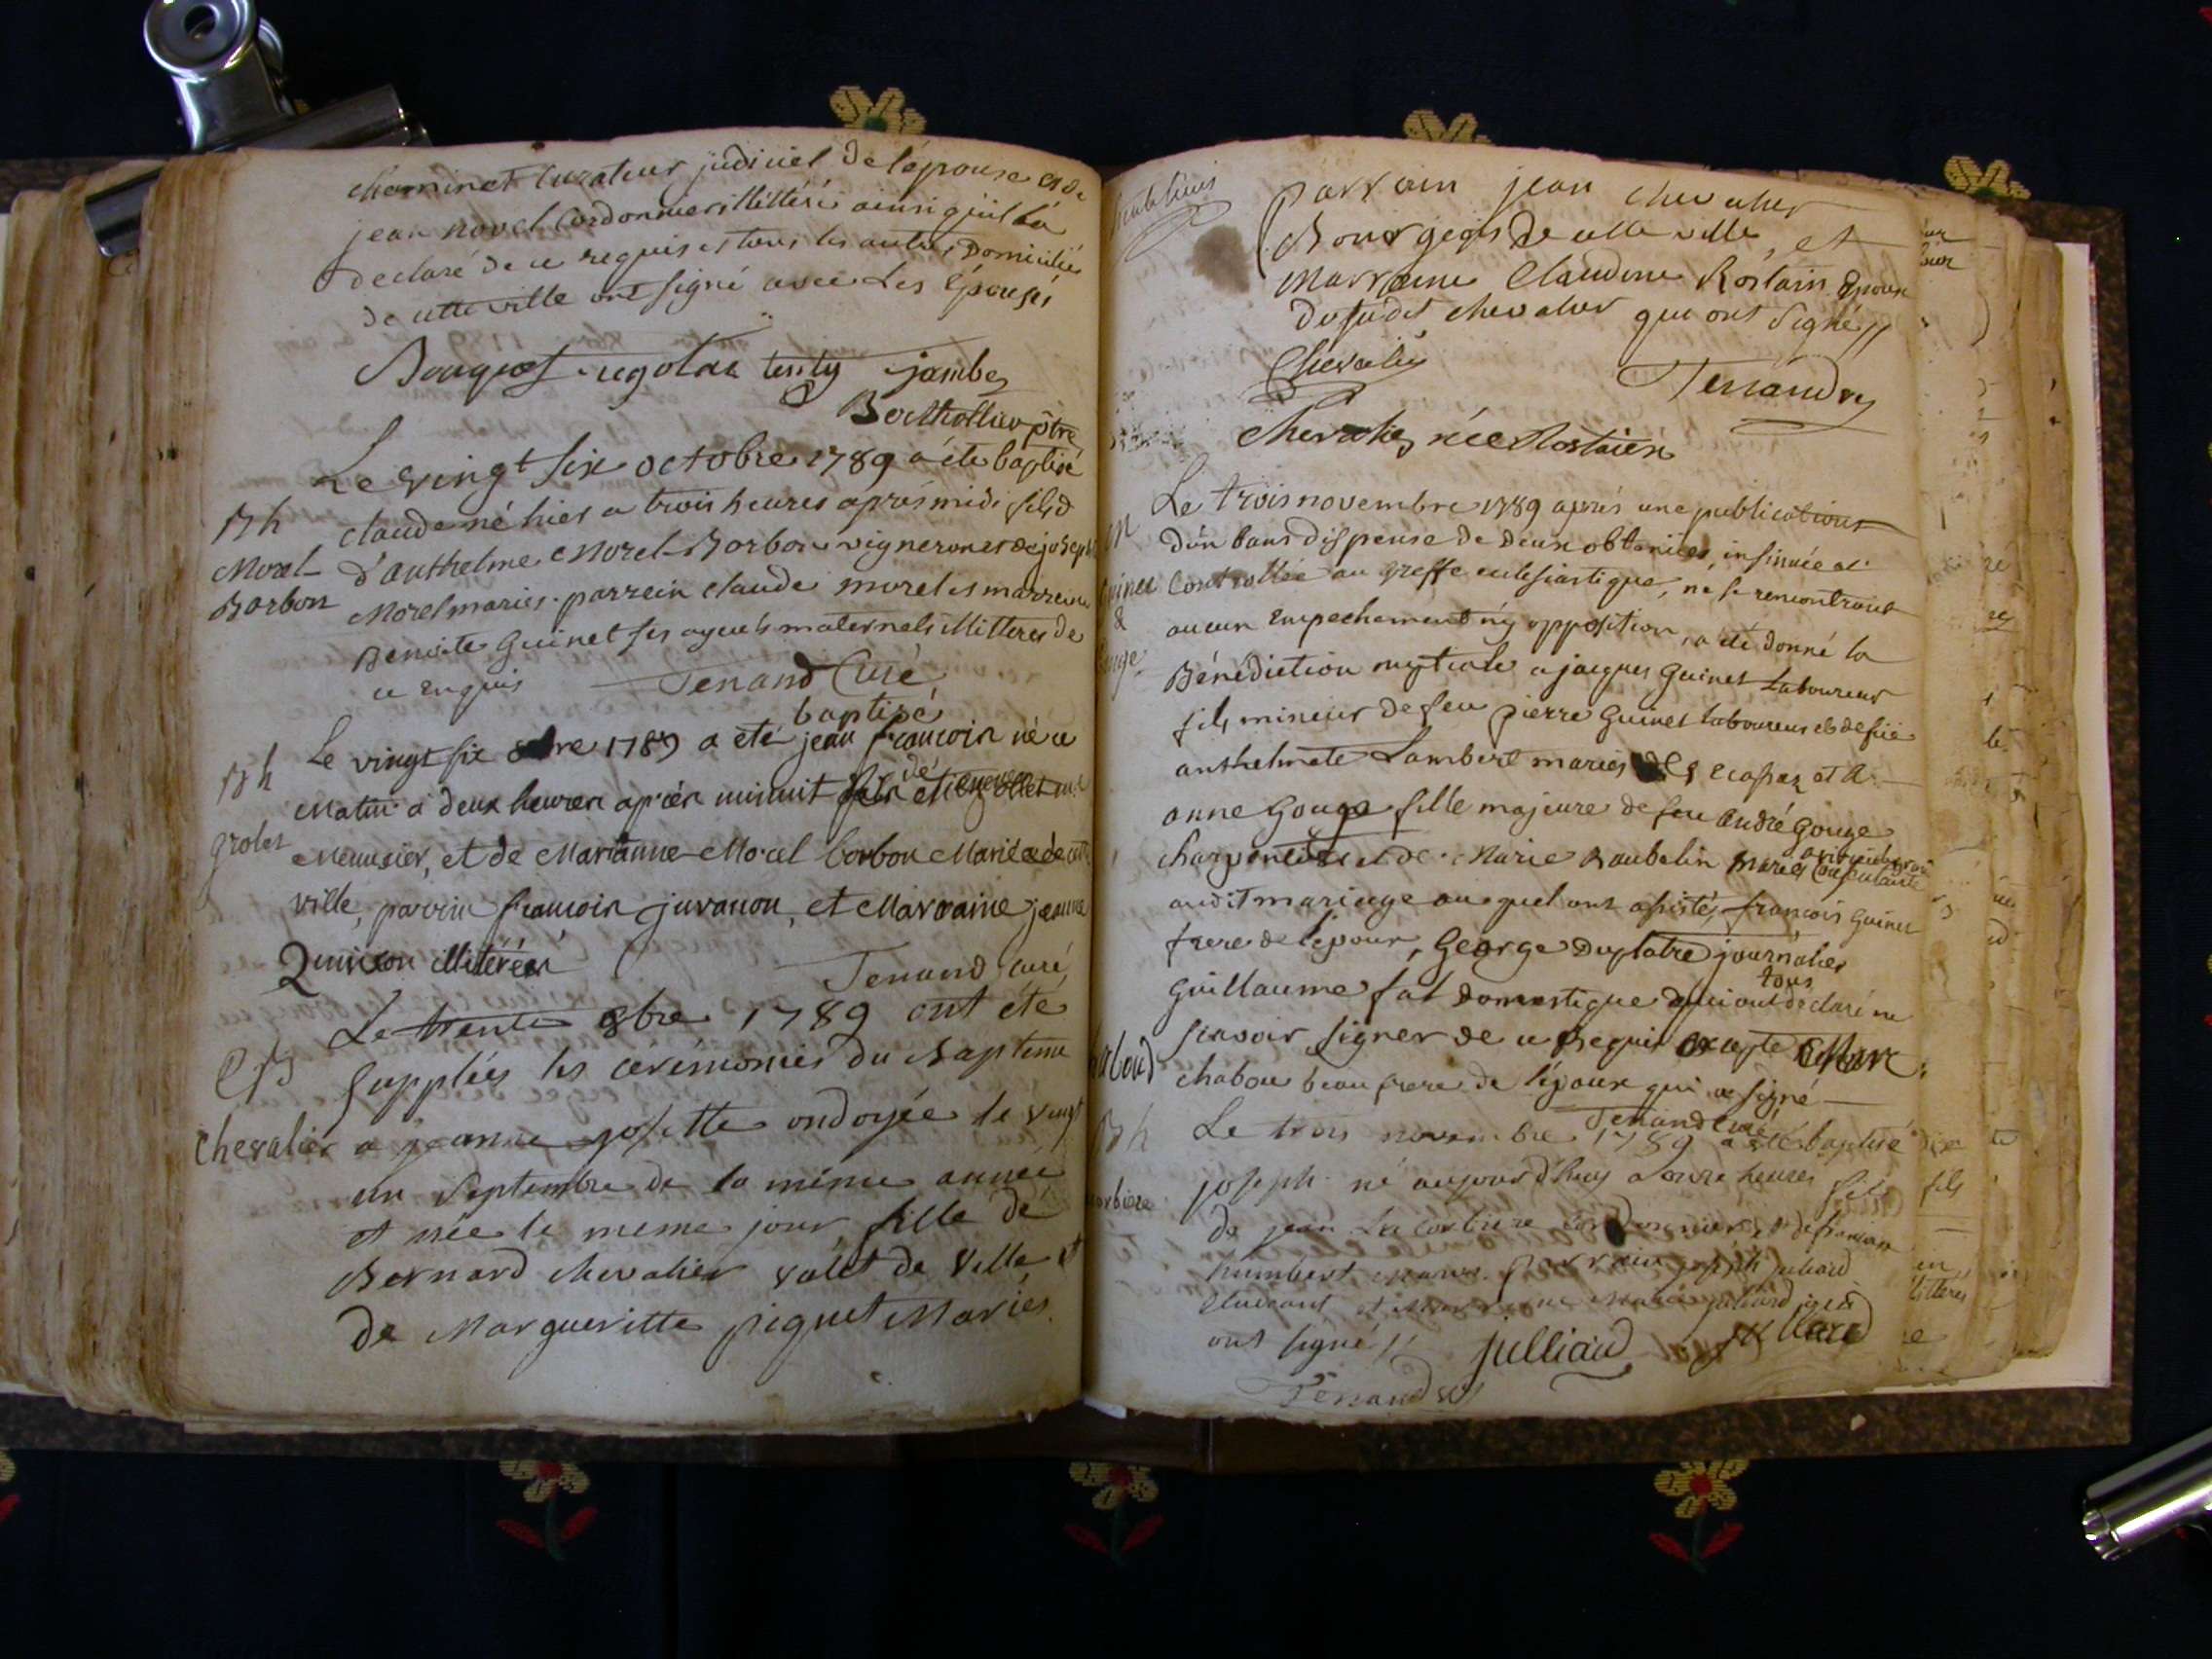 cheminet Curateur judiciel de l'épouse et de
jean novel Cordonnier illittéré ainsi qu'il l'a
declaré de ce requis et tous les autres Domiciliés
de cette ville ont signé avec Les épousés
Bouquet tenty jambe
Berthollier ptre
Le vingt six octobre 1789 a été baptisé
Bh claude né hier a trois heures après midi fils d
Morel d'anthelme Morel-Borbon vigneron et de joseph
Borbon Morel mariés. parrein claude morel et marreine
Benoite Guinet ses ayeuls maternels illitterés de
ce enquis Tenand Curé
baptisé
Le vingt six 8bre 1789 a été jean francois né ce
Bh Matin à deux heures après minuit fils de
groles Menuisier, et de Marianne Morel borbon Mariés de cette
ville, parrin francois juvanon, et Marraine jeanne
Quinson illiterés
Tenand curé
Le trente 8bre 1789 ont été
supplées les cérémonies du Baptême
chevalier a jeanne josette ondoyée le vingt
un Septembre de la même année
et née le meme jour, fille de
Bernard chevalier valet de Ville et
de Margueritte piquet Mariés.
Parrain jean chevalier
Bourgeois de cette ville, et
Marraine Claudine Rostain Epouse
du susdit chevalier qui ont signé //
Chevalier
Tenand
Chevalier née Rostaien
Le trois novembre 1789 après une publication
d'un bans dispense de deux obtenües, insinuée et
Guinet Controllée au greffe eclesiastique, ne se rencontrant
& aucun Empechement ny opposition, a été donné la
Gouge Bénédiction nuptiale a jacques Guinet Laboureur
fils mineur de feu pierre Guinet laboureur et de füe
anthelmete Lambert mariés et a
anne Gouge fille majeure de feu andré Gouge
charpentier et de Marie Baubelin mariés Consentante
audit mariage auquel ont assistés francois Guinet
frere de l'epoux, George Duplatre journalier
tous
Guillaume fat Domestique qui ont déclaré ne
scavoir signer de ce Requis excepté Mar
chabou beau frere de l'époux qui a signé
Tenand curé
Bh Le trois novembre 1789 a été baptisé
joseph né aujourd'huy a onze heures fils
de jean La Corbiere Cordonnier, et de francoise
humbert mariés. parrain joseph juliard
et Marraine Marie juliard qui
ont signé // julliard julliard
Tenand